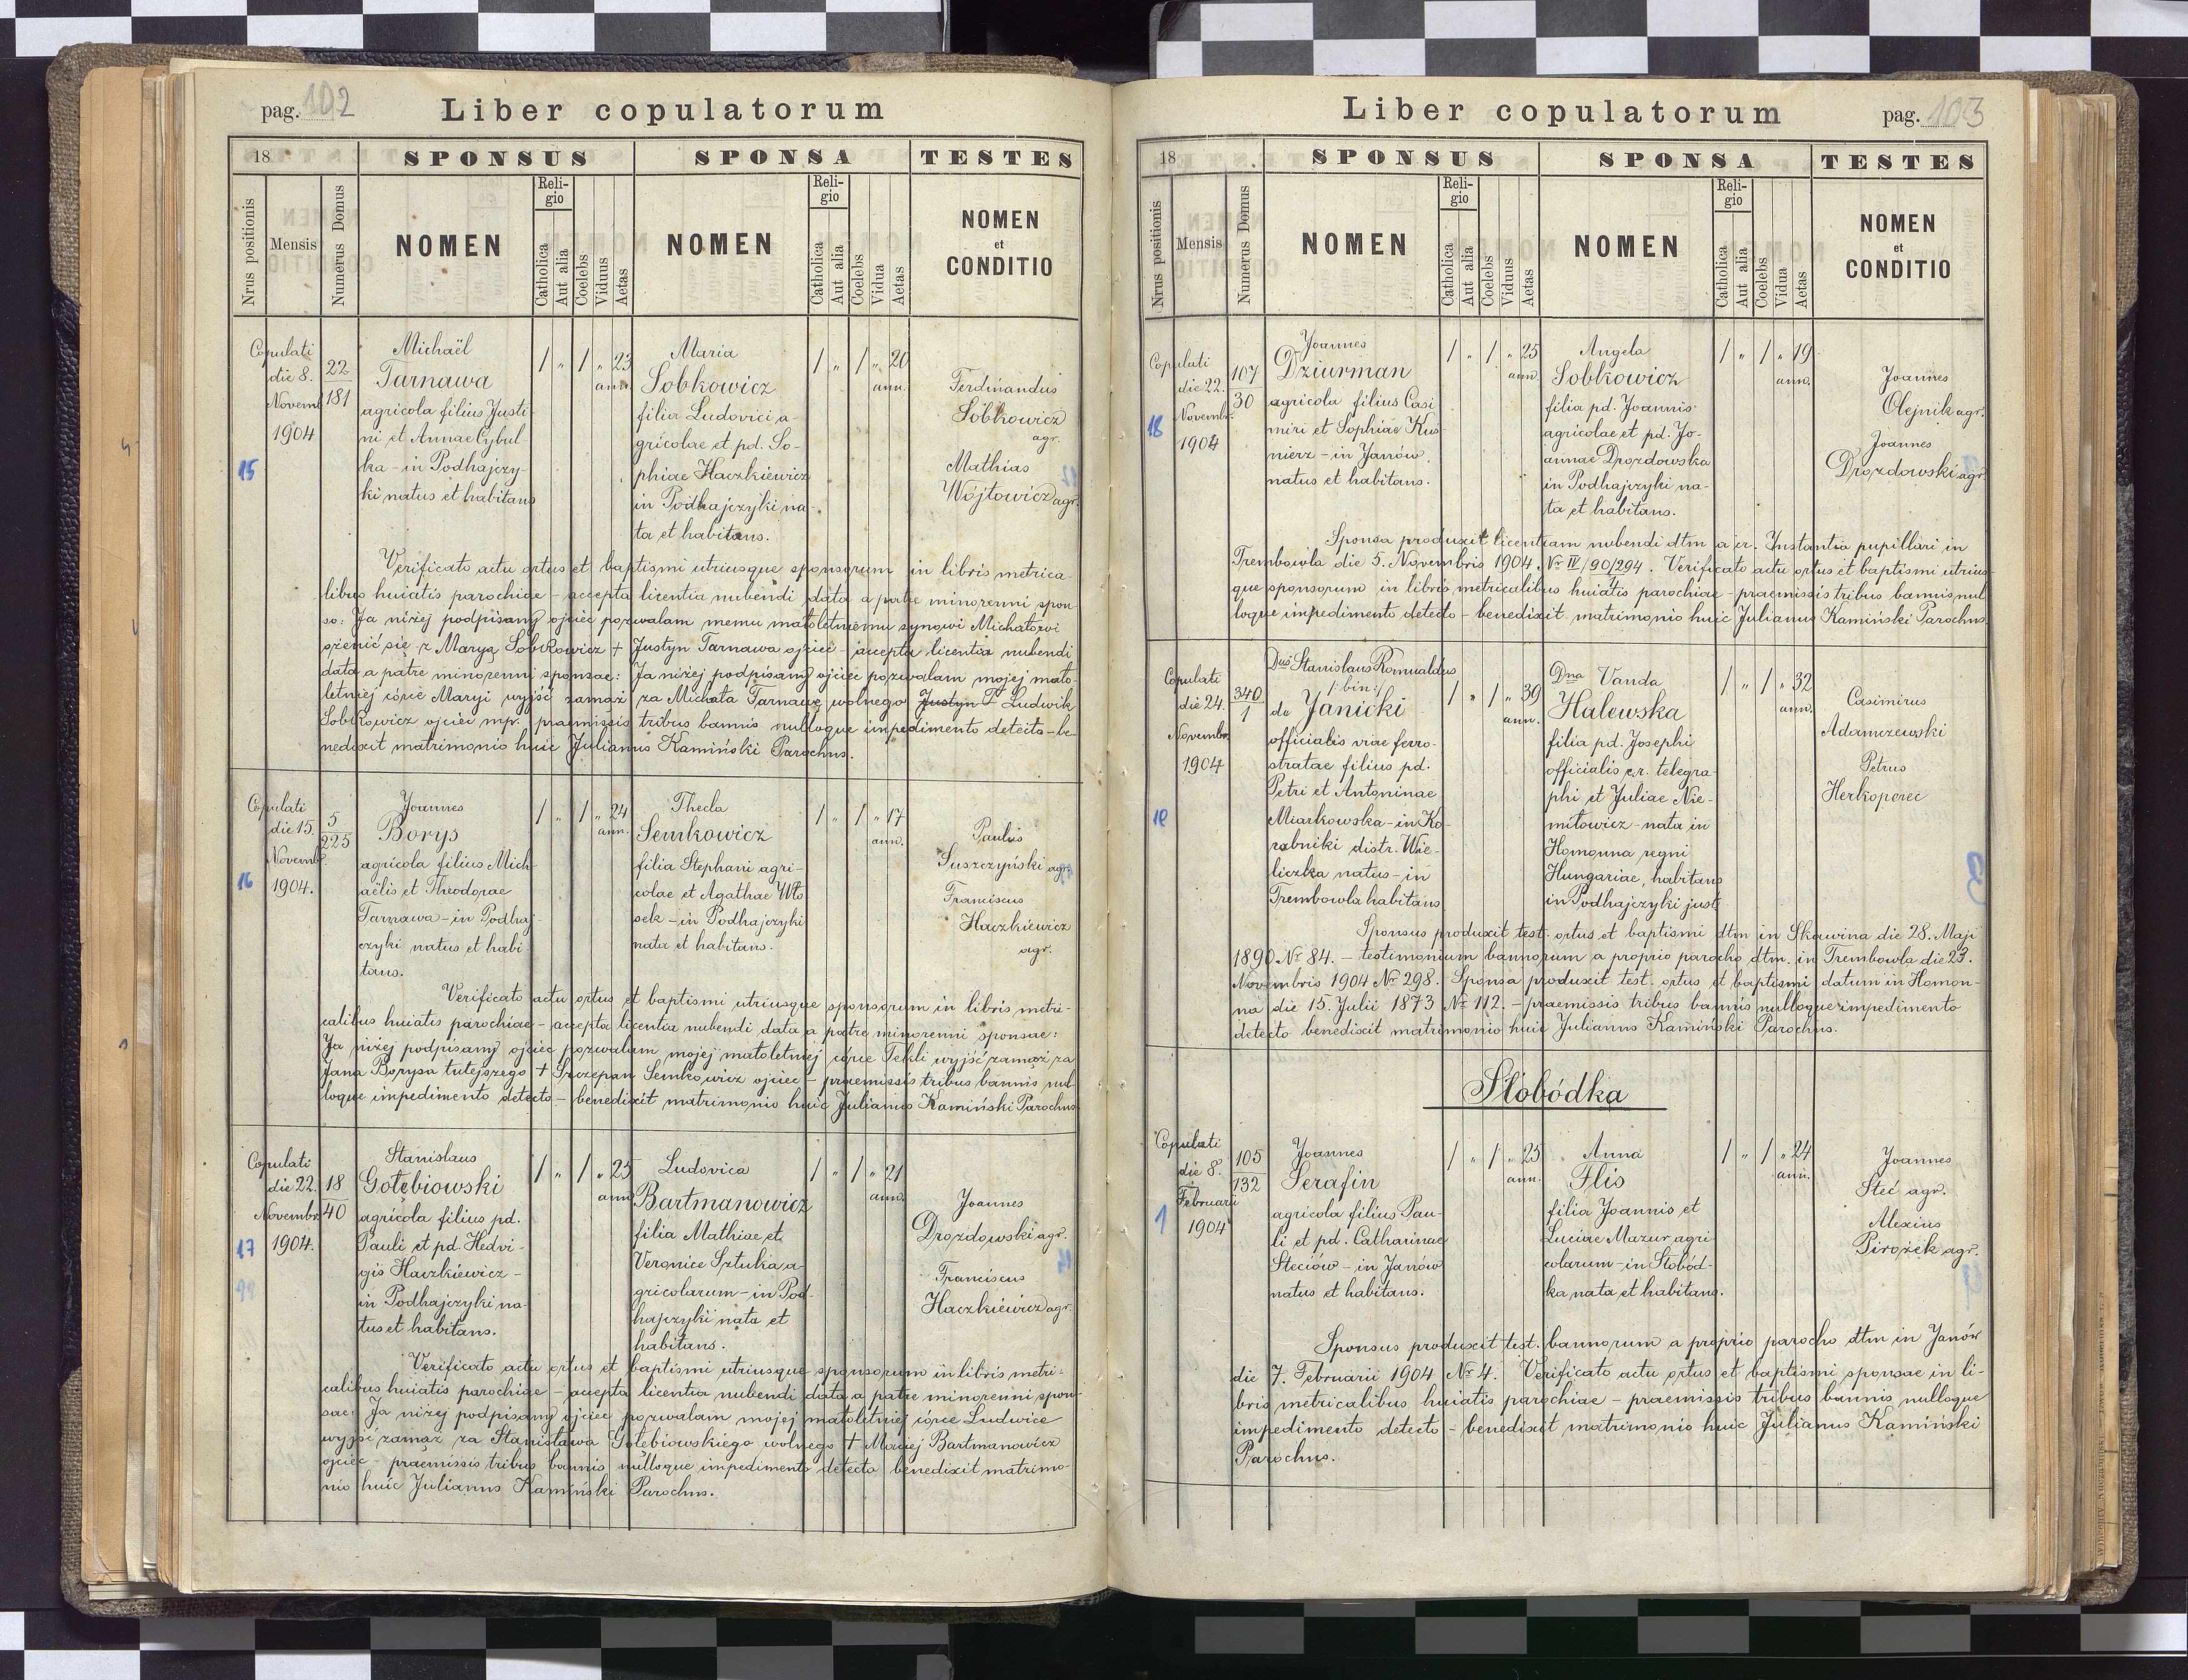 pag. 102
Liber copulatorum
18
SPONSUS
SPONSA
TESTES
Nrus positionis
Mensis
Numerus Domus
NOMEN
Reli-
gio
Catholica
Aut alia
Coelebs
Viduus
Aetas
NOMEN
Reli-
gio
Catholica
Aut alia
Coelebs
Vidua
Aetas
NOMEN
et
CONDITIO
15
Copulati
die 8.
Novemb
1904
22
181
Michaël
Tarnawa
agricola filius Justi-
ni et Annae Cybul
ka - in Podhajczy-
ki natus et habitans
1 " 1 " 23
ann.
Maria
Sobkowicz
filia Ludovici a-
gricolae et pd. So-
phiae Haczkiewicz
in Podhajczyki na-
ta et habitans.
1 " 1 " 20
ann.
Ferdinandus
Sobkowicz
agr.
Mathias
Wójtowicz agr.
Verificato actu ortus et baptismi utriusque sponsorum in libris metrica-
libus huiatis parochiae - accepta licentia nubendi data a patre minorenni spon-
so: Ja niżej podpisany ojciec pozwalam memu małoletniemu synowi Michałowi
ożenić się z Maryą Sobkowicz + Justyn Tarnawa ojciec - accepta licentia nubendi
data a patre minorenni sponsae: Ja niżej podpisany ojciec pozwalam mojej mało-
letniej córce Maryi wyjść zamąż za Michała Tarnawę wolnego Justyn + Ludwik
Sobkowicz ojciec mp. praemissis tribus bannis nulloque impedimento detecto - be-
nedixit matrimonio huic Julianus Kamiński Parochus.
16
Copulati
die 15.
Novemb.
1904.
5
225
Joannes
Borys
agricola filius Mich-
aëlis et Theodorae
Tarnawa - in Podhaj-
czyki natus et habi-
tans.
1 " 1 " 24
ann.
Thecla
Semkowicz
filia Stephani agri-
colae et Agathae Wło
sek - in Podhajczyki
nata et habitans.
1 " 1 " 17
ann.
Paulus
Suszczyński agr.
Franciscus
Haczkiewicz
agr.
Verificato actu ortus et baptismi utriusque sponsorum in libris metri-
calibus huiatis parochiae - accepta licentia nubendi data a patre minorenni sponsae:
Ja niżej podpisany ojciec pozwalam mojej małoletniej córce Tekli wyjść zamąż za
Jana Borysa tutejszego + Szczepan Semkowicz ojciec - praemissis tribus bannis nul
loque impedimento detecto - benedixit matrimonio huic Julianus Kamiński Parochus
17
Copulati
die 22.
Novembr.
1904.
18
40
Stanislaus
Gołębiowski
agricola filius pd.
Pauli et pd. Hedvi-
gis Haczkiewicz -
in Podhajczyki na-
tus et habitans.
1 " 1 " 25
ann
Ludovica
Bartmanowicz
filia Mathiae et
Veronice Sztuka a-
gricolarum - in Pod-
hajczyki nata et
habitans.
1 " 1 " 21
ann.
Joannes
Drozdowski agr.
Franciscus
Haczkiewicz agr.
Verificato actu ortus et baptismi utriusque sponsorum in libris metri-
calibus huiatis parochiae - accepta licentia nubendi data a patre minorenni spon-
sae: Ja niżej podpisany ojciec pozwalam mojej małoletniej córce Ludwice
wyjść zamąż za Stanisława Gołębiowskiego wolnego + Maciej Bartmanowicz
ojciec - praemissis tribus bannis nulloque impedimento detecto benedixit matrimo-
nio huic Julianus Kamiński Parochus.
Liber copulatorum
pag. 103
18
SPONSUS
SPONSA
TESTES
Nrus positionis
Mensis
Numerus Domus
NOMEN
Reli-
gio
Catholica
Aut alia
Coelebs
Viduus
Aetas
NOMEN
Reli-
gio
Catholica
Aut alia
Coelebs
Vidua
Aetas
NOMEN
et
CONDITIO
18
Copulati
die 22.
Novembr.
1904
107
30
Joannes
Dziurman
agricola filius Casi
miri et Sophiae Kus-
nierz - in Janów
natus et habitans.
1 " 1 " 25
ann.
Angela
Sobkowicz
filia pd. Joannis
agricolae et pd. Jo-
annae Drozdowska
in Podhajczyki na-
ta et habitans.
1 " 1 " 19
ann.
Joannes
Olejnik agr.
Joannes
Drozdowski agr.
Sponsa produxit licentiam nubendi dtm a cr. Instantia pupillari in
Trembowla die 5. Novembris 1904. Nr IV/90/294. Verificato actu ortus et baptismi utrius-
4
que sponsorum in libris metricalibus huiatis parochiae - praemissis tribus bannis nul
loque impedimento detecto - benedixit matrimonio huic Julianus Kamiński Parochus.
19
Copulati
die 24.
Novembr.
1904
340
1
Dnus Stanislaus Romualdus
/:bin:/
de Janicki
officialis viae ferro-
stratae filius pd.
Petri et Antoninae
Miarkowska - in Ko-
rabniki distr. Wie-
liczka natus - in
Trembowla habitans
1 " 1 " 39
ann.
Dna Vanda
Halewska
filia pd. Josephi
officialis c.r. telegra-
phi et Juliae Nie-
mitowicz - nata in
Homonna regni
Hungariae, habitans
in Podhajczyki just.
1 " 1 " 32
ann.
Casimirus
Adamczewski
Petrus
Herkoperec
Sponsus produxit test. ortus et baptismi dtm in Skawina die 28. Maji
1890 Nr 84. - testimonium bannorum a proprio parocho dtm. in Trembowla die 23.
Novembris 1904 Nr 298. Sponsa produxit test. ortus et baptismi datum in Homon-
na die 15. Julii 1873 Nr 112. - praemissis tribus bannis nulloque impedimento
detecto benedixit matrimonio huic Julianus Kamiński Parochus.
Słobódka
1
Copulati
die 8.
Februarii
1904
105
132
Joannes
Serafin
agricola filius Pau-
li et pd. Catharinae
Steciów - in Janów
natus et habitans.
1 " 1 " 25
ann.
Anna
Flis
filia Joannis et
Luciae Mazur agri
colarum - in Słobód-
ka nata et habitans.
1 " 1 " 24
ann.
Joannes
Steć agr.
Alexius
Pirożek agr.
Sponsus produxit test. bannorum a proprio parocho dtm in Janów
die 7. Februarii 1904 Nr 4. Verificato actu ortus et baptismi sponsae in li-
bris metricalibus huiatis parochiae - praemissis tribus bannis nulloque
impedimento detecto - benedixit matrimonio huic Julianus Kamiński
Parochus.